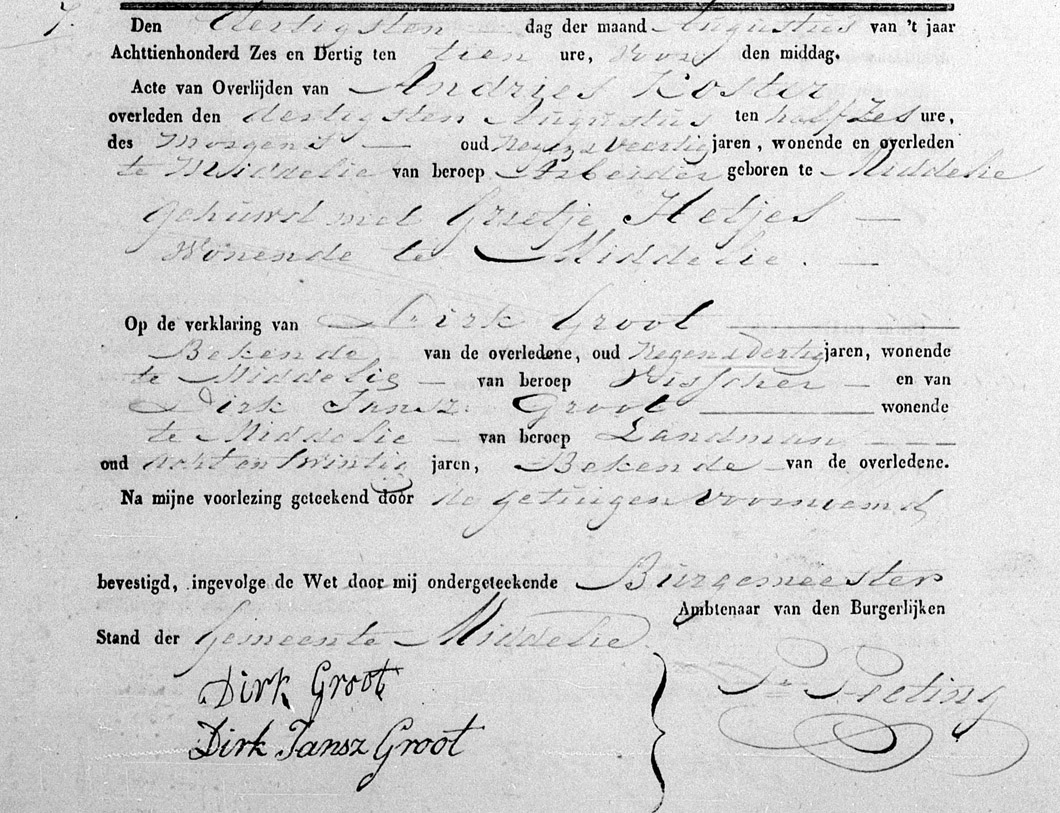 7.
Den dertigsten dag der maand Augustus van 't jaar
Achttienhonderd Zes en Dertig ten tien ure, voor den middag.
Acte van Overlijden van Andries Koster
overleden den dertigsten Augustus ten half Zes ure,
des Morgens — oud Negen en Veertig jaren, wonende en overleden
te Middelie van beroep Arbeider geboren te Middelie
gehuwd met Grietje Hetjes —
Wonende te Middelie. —
Op de verklaring van Dirk Groot —
Bekende van de overledene, oud Negen en Dertig jaren, wonende
te Middelie — van beroep Visscher — en van
Dirk Jansz. Groot — wonende
te Middelie — van beroep Landman — — —
oud Acht en Twintig jaren, Bekende van de overledene.
Na mijne voorlezing geteekend door de getuigen voornoemd
bevestigd, ingevolge de Wet door mij ondergeteekende Burgemeester
Ambtenaar van den Burgerlijken
Stand der Gemeente Middelie.
Dirk Groot
Dirk Jansz Groot
Peting